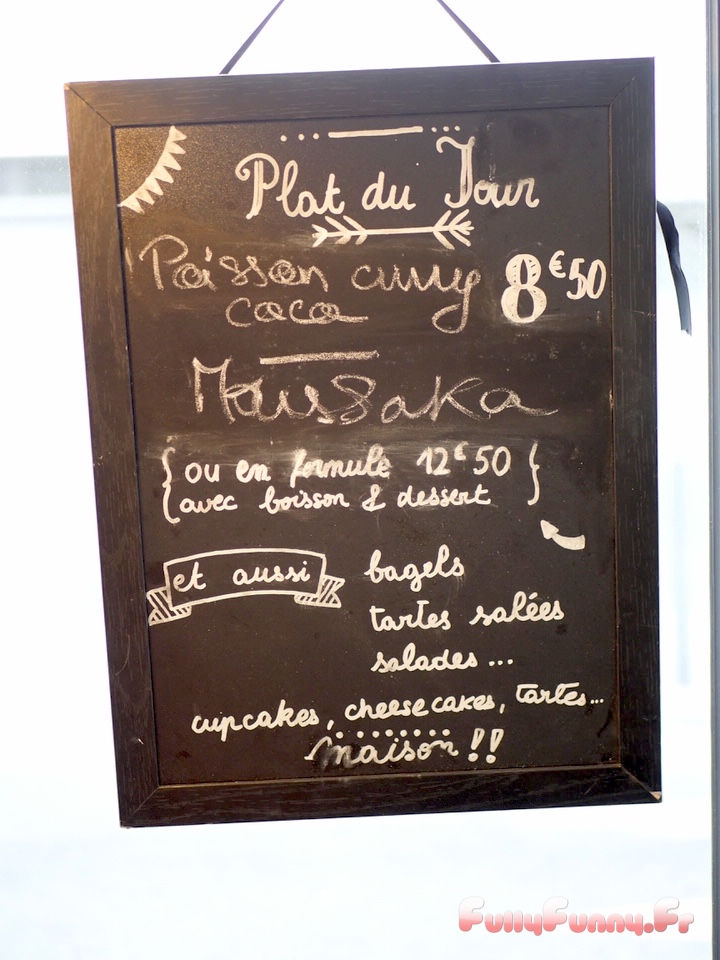 Plat du Jour
Poisson curry 8€50
coco
Moussaka
{ ou en formule 12€50 }
avec boisson & dessert
et aussi
bagels
tartes salées
salades...
cupcakes, cheesecakes, tartes...
maison !!
FullyFunny.Fr